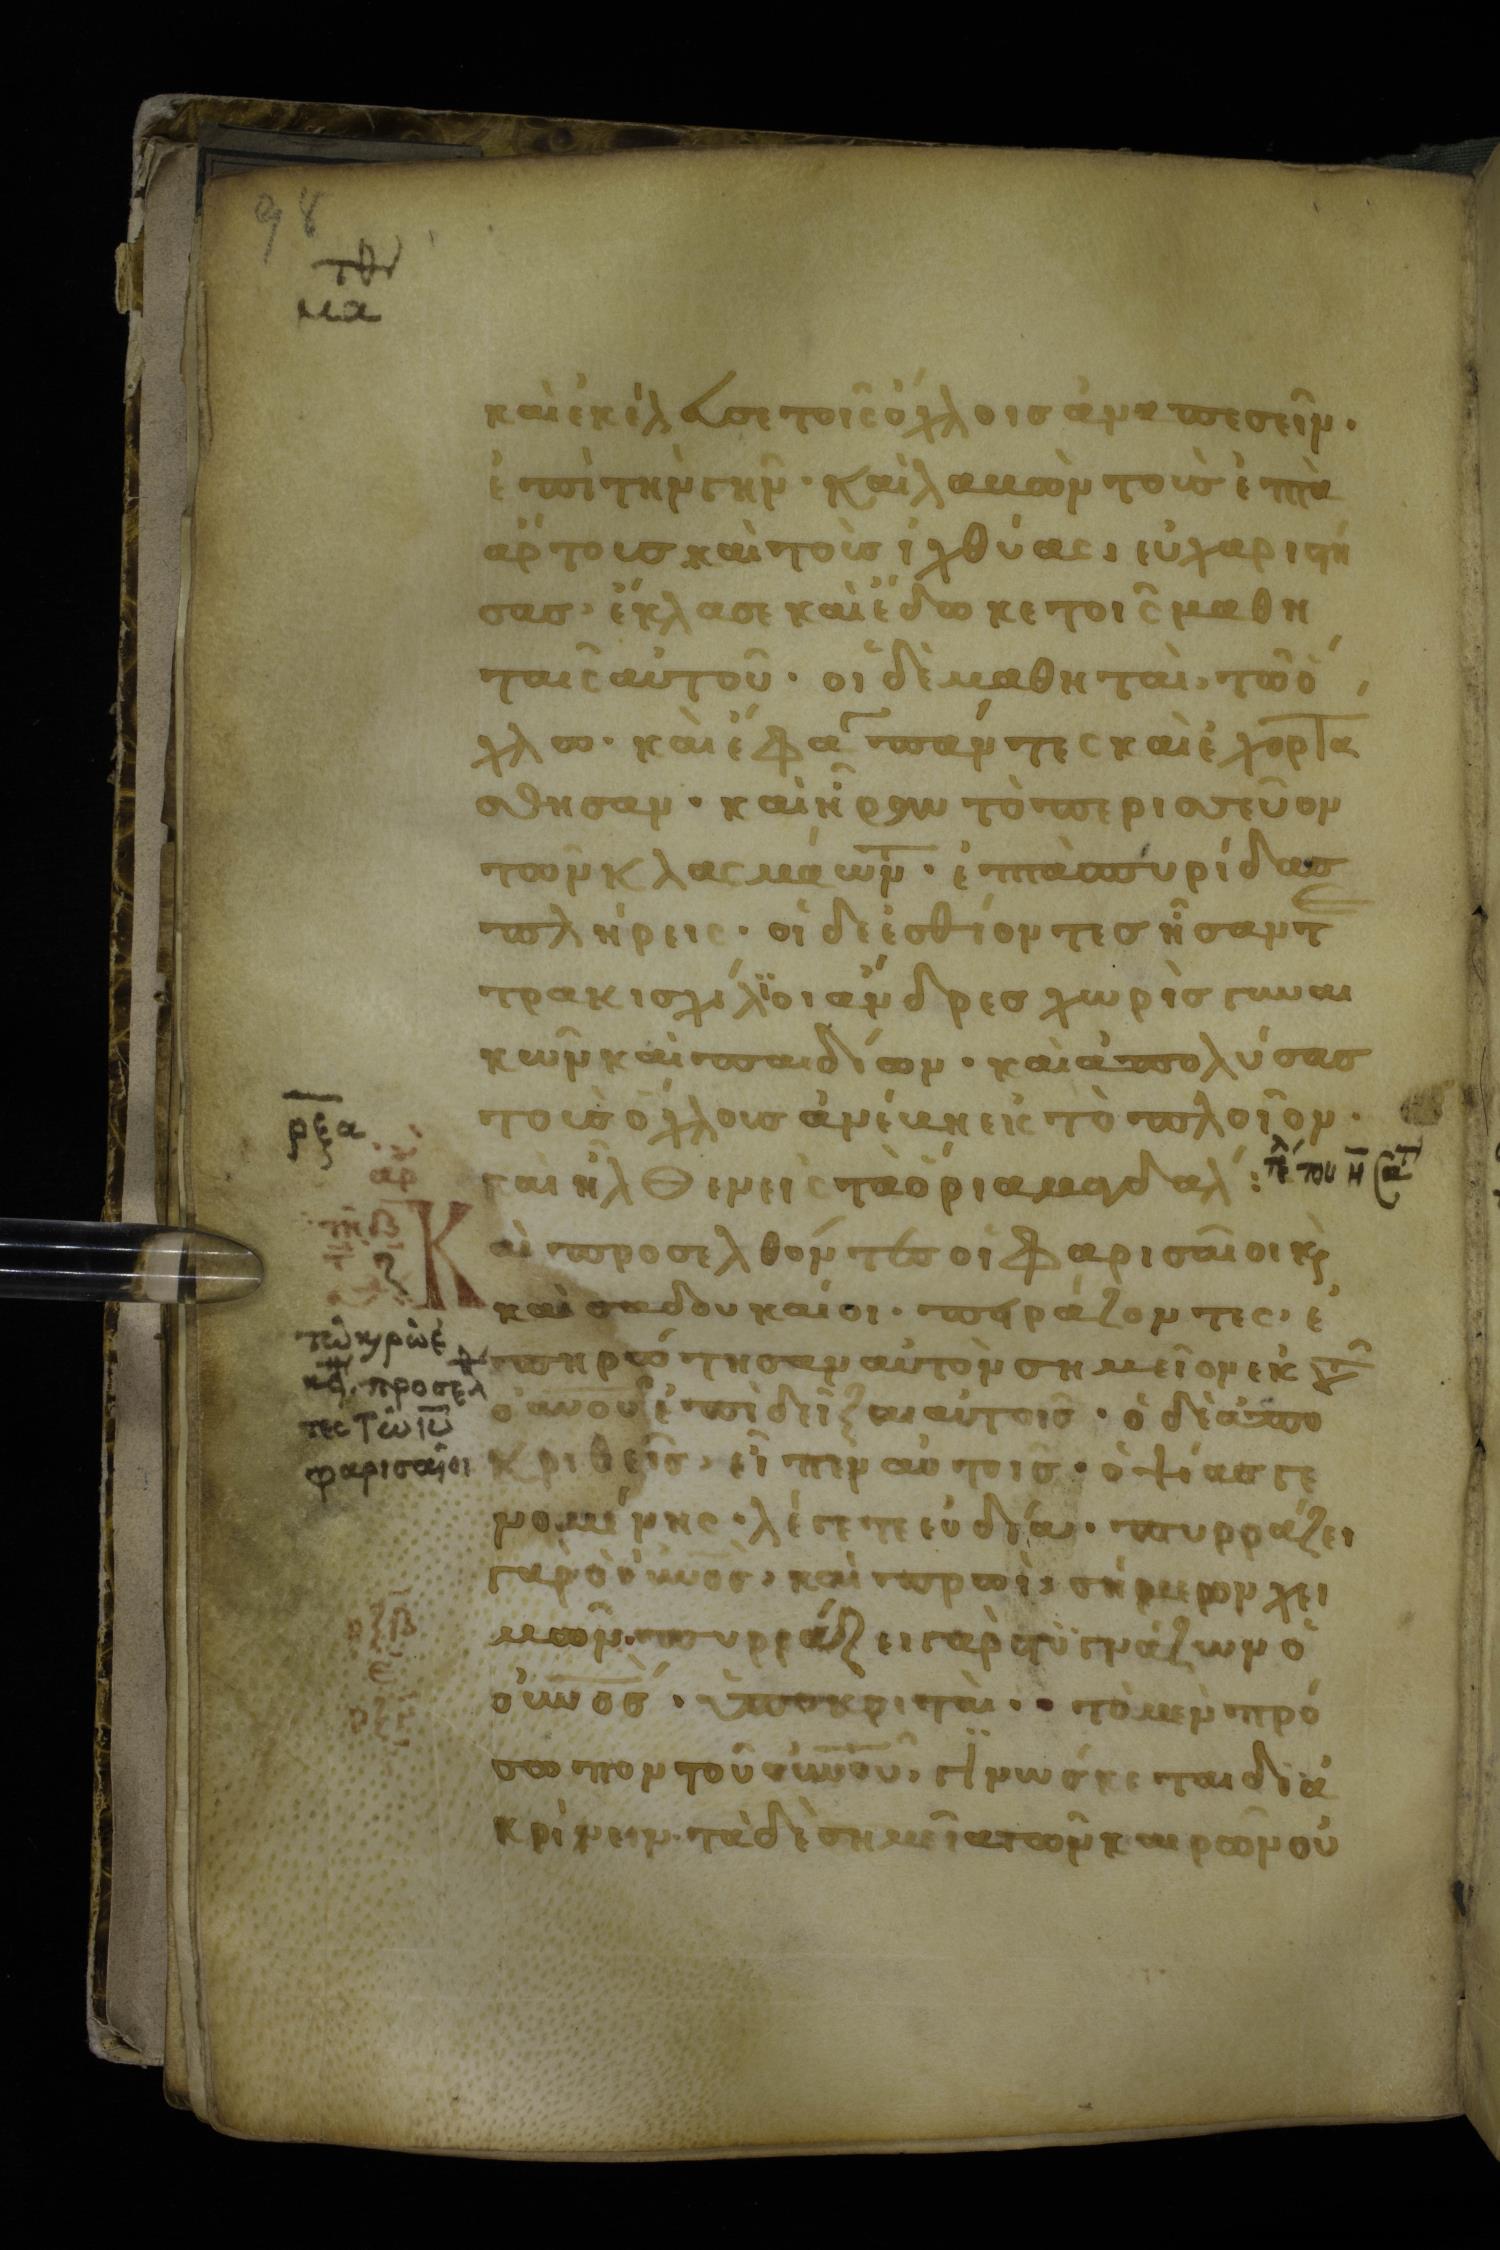 98
μα
καὶ ἐκέλευσε τοῖς ὄχλοις ἀναπεσεῖν·
ἐπὶ τὴν γῆν· καὶ λαβὼν τοὺς ἑπτὰ
ἄρτους καὶ τοὺς ἰχθύας, εὐχαριστή
σας, ἔκλασε καὶ ἔδωκε τοῖς μαθη
ταῖς αὐτοῦ· οἱ δὲ μαθηταὶ, τῶ ὄ
χλω· καὶ ἔφα πάντες καὶ ἐχορτά
σθησαν· καὶ ἦραν τὸ περισσεῦον
τῶν κλασμάτων· ἑπτὰ σπυρίδας
πλήρεις· οἱ δὲ ἐσθίοντες ἦσαν τε
τρακισχίλϊοι ἄνδρες χωρὶς γυναι
κῶν καὶ παιδίων· καὶ ἀπολύσας
τοὺς ὄχλους ἀνέβη εἰς τὸ πλοῖον·
καὶ ἦλθεν εἰς τὰ ὅρια μαγδαλά:
τε του
ρξα
ἀρ
Καὶ προσελθόντες οἱ φαρισαῖοι κὶ
καὶ σαδουκαίοι· πειράζοντες, ἐ
πηρώτησαν αὐτὸν σημεῖον ἐκ τοῦ
οὐνοῦ ἐπιδεῖξαι αὐτοῖς· ὁ δὲ ἀπο
κριθεὶς, εἶπεν αὐτοῖς· ὀψίας γε
νομένης, λέγετε εὐδία· πυρράζει
γὰρ ὁ οὐνὸς, καὶ πρωῒ, σήμερον χει
μῶν· πυρράζει γὰρ στυγνάζων ὁ
οὐνὸς· ὑποκριταὶ· τὸ μὲν πρό
σωπον τοῦ οὐνοῦ, γϊνώσκεται διά
κρίνειν· τὰ δὲ σημεῖα τῶν καιρῶν οὐ
τῶ κυρῶ ἐ
κ, προσελ
τες τῶ ιυ
φαρισαῖοι
ρξβ
ε
ρξγ